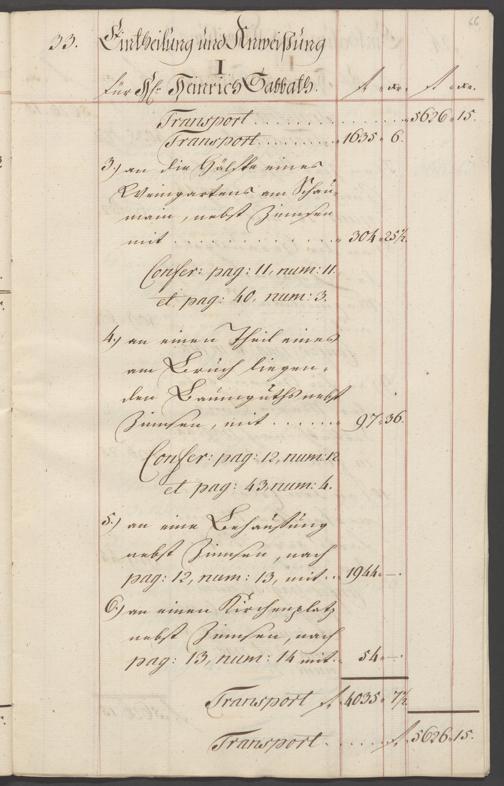 66
33. Eintheilung und Anweißung
I
für H. Heinrich Sabbath. f xr. f xr.
Transport . . . . . . . . . . . 5626. 15.
Transport . . . . . . . 1635. 6.
3.) an die Hälfte eines
Weingartens am Schau-
main, nebst Zinnsen
mit . . . . . . . . . . . 304. 25½.
Confer: pag: 11, num: 11.
et pag: 40, num: 3.
4.) an einen Theil eines
am Bruch liegen-
den Baumguths nebst
Zinnsen, mit . . . . . . 97. 36.
Confer: pag: 12, num: 12.
et pag: 43, num: 4.
5.) an eine Behaußung
nebst Zinnsen, nach
pag: 12, num: 13, mit . . 1944. —.
6.) an einen Kirchenplatz
nebst Zinnsen, nach
pag: 13, num: 14 mit . . 54. —.
Transport f. 4035. 7½.
Transport . . . . . f. 5626. 15.